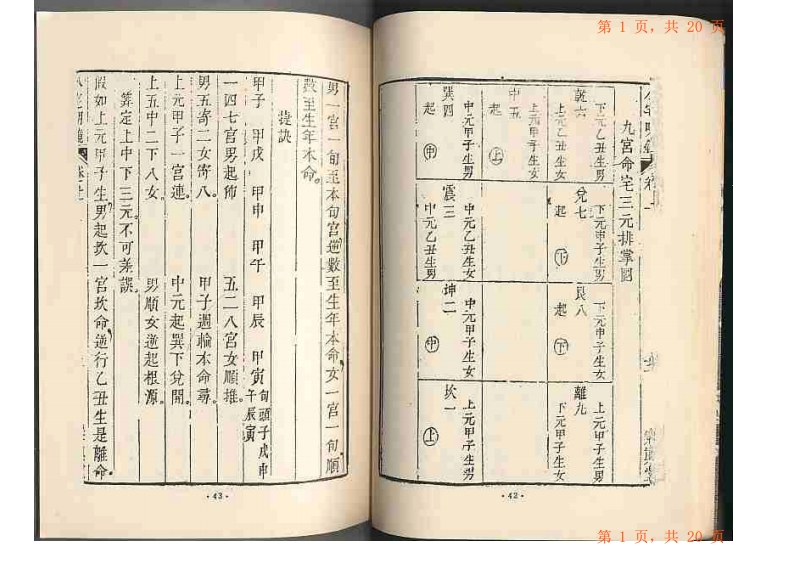 第 1 页, 共 20 页
九宮命宅三元排掌圖
乾六
下元乙丑生男
上元乙丑生女
中五
上元甲子生女
起
上
巽四
中元甲子生男
起
中
兌七
下元甲子生男
起
下
震三
中元甲子生男
中元乙丑生男
艮八
下元甲子生女
起
下
坤二
中元甲子生女
中
離九
上元甲子生女
下元甲子生女
坎一
上元甲子生男
上
·42·
男一宮一旬至本旬宮逆數至生年本命女一宮一旬順
數至生年本命。
捷訣
甲子 甲戌 甲申 甲午 甲辰 甲寅 旬頭子戌申午辰寅
一四七宮男起佈 五二八宮女順推。
男五寄二女寄八。 甲子週輪本命尋。
上元甲子一宮連。 中元起巽下兌間。
上五中二下八女。 男順女逆起根源。
算定上中下三元。不可差誤
假如上元甲子生男起坎一宮坎命逆行乙丑生是離命。
·43·
第 1 页, 共 20 页